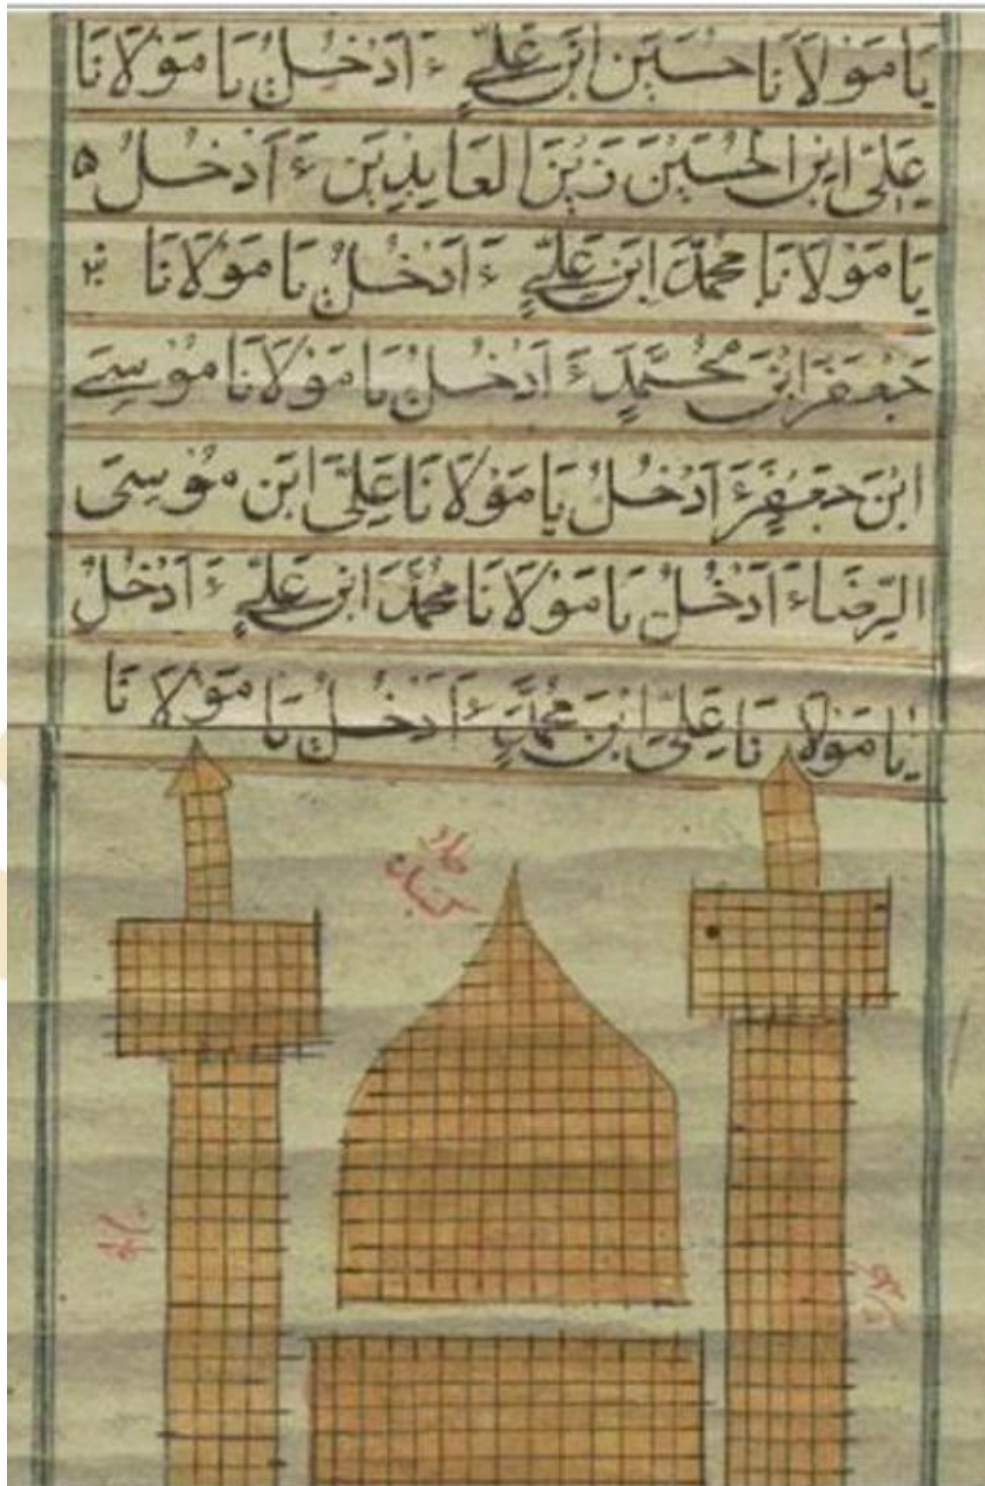 يَا مَوْلَانَا حُسَيْن اِبْن عَلِيٍّ ءَ اَدْخُلُ يَا مَوْلَانَا
عَلِيِّ ابْنِ الْحُسَيْنِ زَيْنَ الْعَابِدِيْنَ ءَ اَدْخُلُ
يَا مَوْلَانَا مُحَمَّدَ ابْنِ عَلِيٍّ ءَ اَدْخُلُ يَا مَوْلَانَا
جَعْفَرَ ابْنَ مُحَمَّدٍ ءَ اَدْخُلُ يَا مَوْلَانَا مُوْسَے
ابْنَ جَعْفَرٍ ءَ اَدْخُلُ يَا مَوْلَانَا عَلِيَّ ابْن مُوْسِىَ
الرِّضَاءَ ءَ اَدْخُلُ يَا مَوْلَانَا مُحَمَّدَ ابْنِ عَلِيٍّ ءَ اَدْخُلُ
يَا مَوْلَانَا عَلِيَّ ابْنَ مُحَمَّدٍ ءَ اَدْخُلُ يَا مَوْلَانَا